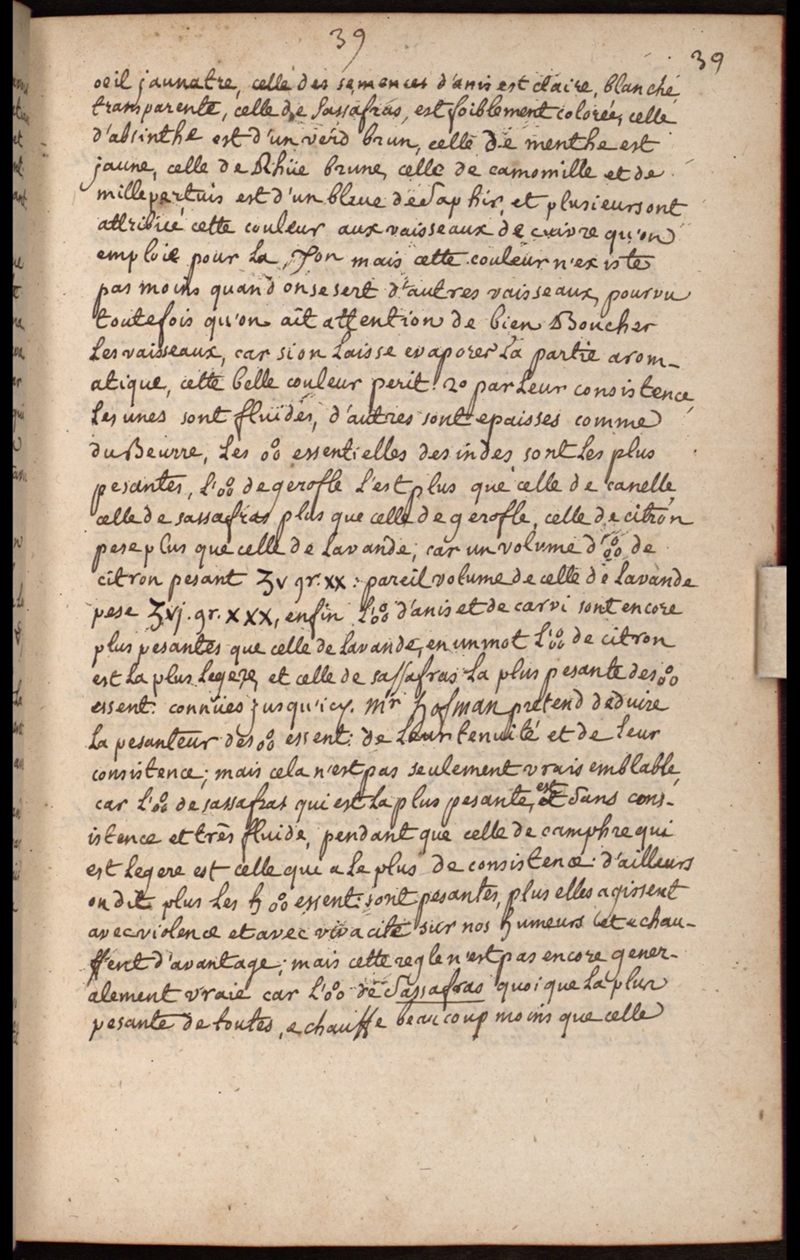 39
39
oeil jaunatre, celle des semences d'anis est claire, blanche
transparente, celle de Sassafras, est foiblement colorée, celle
d'absinthe est d'un verd brun, celle de menthe est
jaune, celle de Rhüe brune, celle de camomille et de
millepertuis est d'un bleue de Saphir, et plusieurs ont
attribüé cette couleur aux vaisseaux de cuivre qu'on
emploie pour la mais cette couleur n'existe
pas moins quand on se sert d'autres vaisseaux, pourvu
toutefois qu'on ait attention de bien Boucher
les vaisseaux, car si on laisse evaporer la partie arom-
atique, cette belle couleur perit. 2o par leur consistence
les unes sont fluides, d'autres sont epaisses comme
du Beurre, les o°o essentielles des indes sont les plus
pesantes, l'o°o de gerofle l'est plus que celle de canelle
celle de sassafras plus que celle de gerofle, celle de citron
pese plus que celle de lavande, car un volume d'o°o de
citron pesant ʒv gr. xx : pareil volume de celle de lavande
pese ʒvj. gr. xxx, enfin l'o°o d'anis et de carvi sont encore
plus pesantes que celle de lavande, en un mot l'o°o de citron
est la plus legere, et celle de sassafras la plus pesante des o°o
essent: connües jusqu'icy. Mr hofman pretend deduire
la pesanteur des o°o essent: de leur tenuité et de leur
consistence; mais cela n'est pas seulement vraisemblable,
car l'o°o de sassafras qui est la plus pesante, est sans cons-
istence et très fluide, pendant que celle de camphre qui
est legere est celle qui a le plus de consistence. d'ailleurs
on dit plus les h o°o essent: sont pesantes, plus elles agissent
avec violence et avec vivacité sur nos humeurs et echau-
ffent d'avantage; mais cette regle n'est pas encore gener-
alement vraie car l'o°o de Sassafras quoique la plus
pesante de toutes, echauffe beaucoup moins que celle